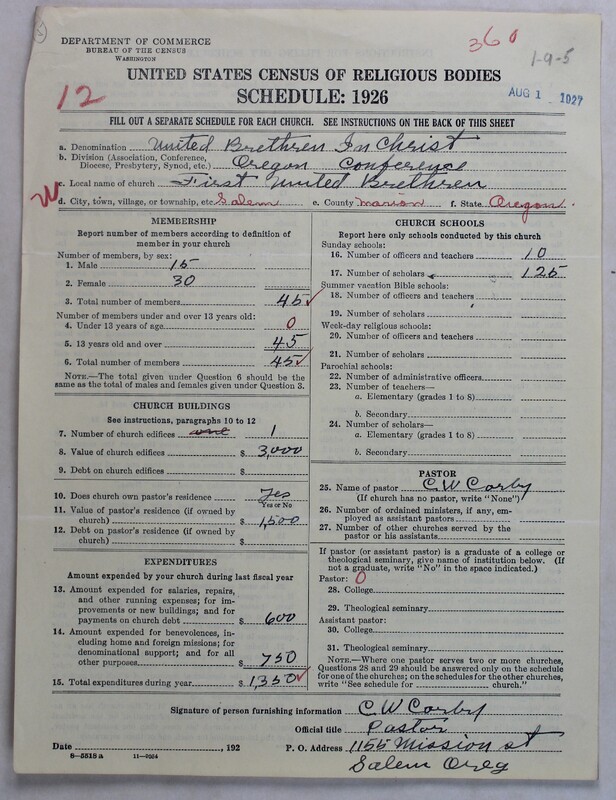 DEPARTMENT OF COMMERCE
BUREAU OF THE CENSUS
WASHINGTON
360
1-9-5
UNITED STATES CENSUS OF RELIGIOUS BODIES
12
SCHEDULE: 1926
AUG 1 1927
FILL OUT A SEPARATE SCHEDULE FOR EACH CHURCH. SEE INSTRUCTIONS ON THE BACK OF THIS SHEET
a. Denomination United Brethren In Christ
b. Division (Association, Conference, Diocese, Presbytery, Synod, etc.) Oregon Conference
c. Local name of church First United Brethren
W
d. City, town, village, or township, etc. Salem e. County Marion f. State Oregon.
MEMBERSHIP
Report number of members according to definition of
member in your church
Number of members, by sex:
1. Male 15
2. Female 30
3. Total number of members 45 ✓
Number of members under and over 13 years old:
4. Under 13 years of age 0
5. 13 years old and over 45
6. Total number of members 45 ✓
NOTE.—The total given under Question 6 should be the
same as the total of males and females given under Question 3.
CHURCH BUILDINGS
See instructions, paragraphs 10 to 12
7. Number of church edifices one 1
8. Value of church edifices $ 3,000
9. Debt on church edifices $
10. Does church own pastor's residence Yes
Yes or No
11. Value of pastor's residence (if owned by
church) $ 1,500
12. Debt on pastor's residence (if owned by
church) $
EXPENDITURES
Amount expended by your church during last fiscal year
13. Amount expended for salaries, repairs,
and other running expenses; for im-
provements or new buildings; and for
payments on church debt $ 600
14. Amount expended for benevolences, in-
cluding home and foreign missions; for
denominational support; and for all
other purposes $ 750
15. Total expenditures during year $ 1350 ✓
CHURCH SCHOOLS
Report here only schools conducted by this church
Sunday schools:
16. Number of officers and teachers 10
17. Number of scholars 125
Summer vacation Bible schools:
18. Number of officers and teachers
19. Number of scholars
Week-day religious schools:
20. Number of officers and teachers
21. Number of scholars
Parochial schools:
22. Number of administrative officers
23. Number of teachers—
a. Elementary (grades 1 to 8)
b. Secondary
24. Number of scholars—
a. Elementary (grades 1 to 8)
b. Secondary
PASTOR
25. Name of pastor C. W Corby
(If church has no pastor, write "None")
26. Number of ordained ministers, if any, em-
ployed as assistant pastors
27. Number of other churches served by the
pastor or his assistants
If pastor (or assistant pastor) is a graduate of a college or
theological seminary, give name of institution below. (If
not a graduate, write "No" in the space indicated.)
Pastor: 0
28. College
29. Theological seminary
Assistant pastor:
30. College
31. Theological seminary
NOTE.—Where one pastor serves two or more churches,
Questions 28 and 29 should be answered only on the schedule
for one of the churches; on the schedules for the other churches,
write "See schedule for church."
Signature of person furnishing information C. W Corby
Official title Pastor
Date , 192 P. O. Address 1155 Mission st
8—5518 a 11—9264
Salem Oreg